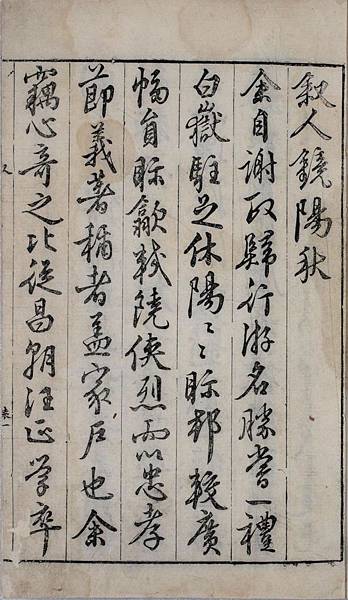 叙人鏡陽秋
余自謝政歸行游名勝嘗一禮
白嶽駐之休陽〻眎郡較廣
幅員眎歙較饒俠烈而以忠孝
節義著稱者盖家戶也余
竊心奇之比從昌朝汪正学卒